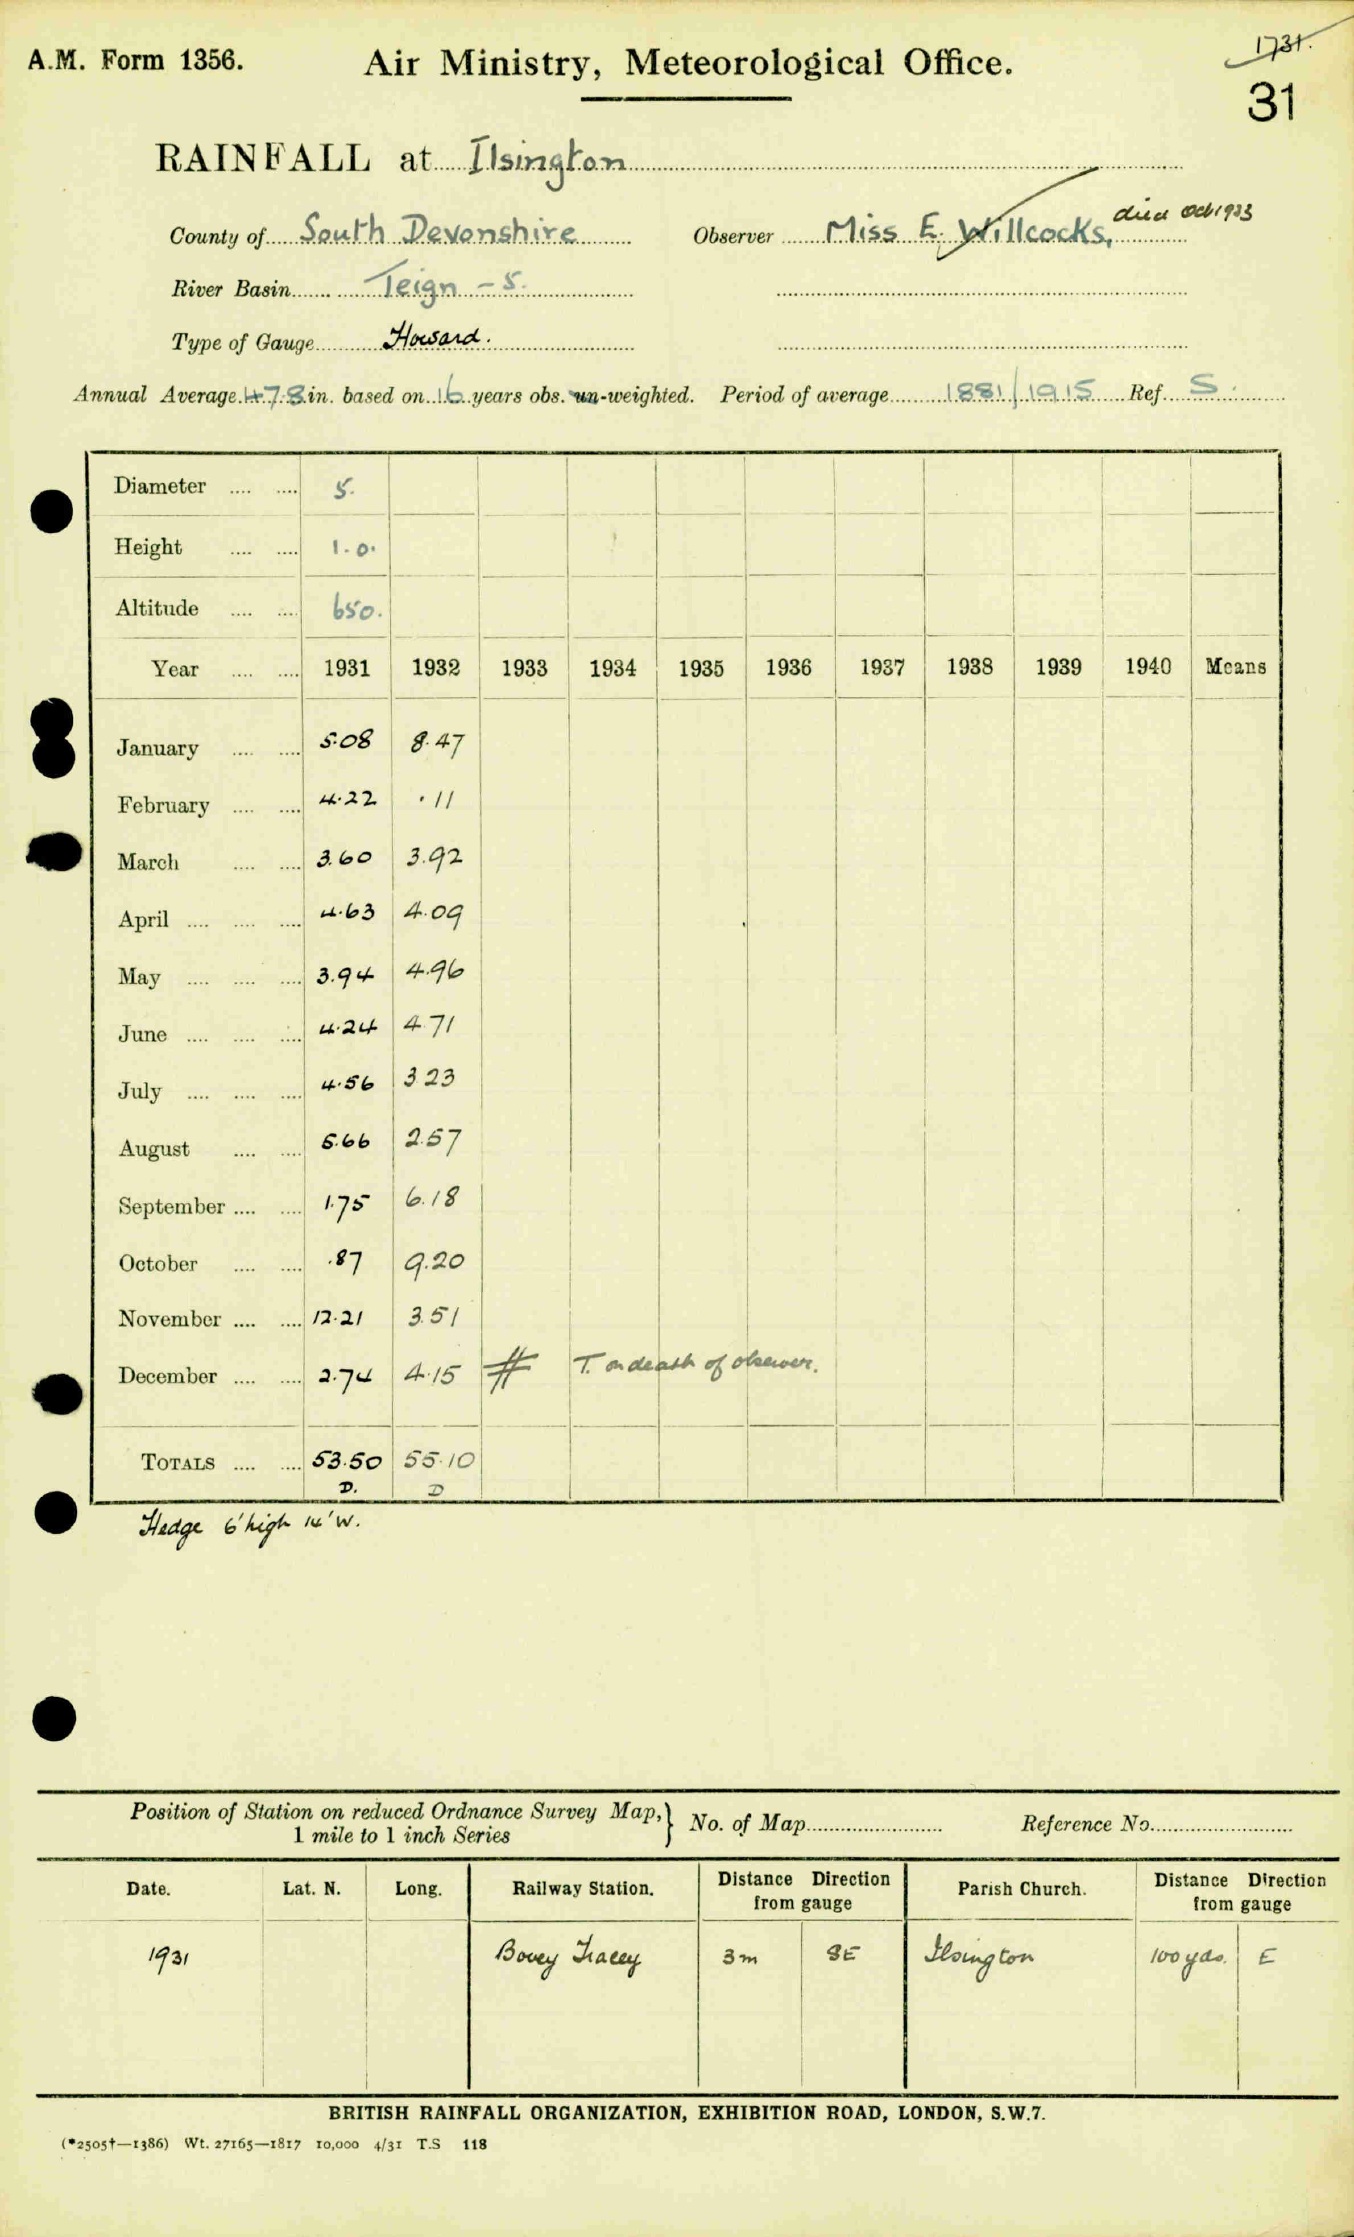 A.M. Form 1356.
Air Ministry, Meteorological Office.
1731.
31
RAINFALL at Ilsington
County of South Devonshire Observer Miss E. Willcocks, died Oct 1933
River Basin Teign - 5.
Type of Gauge Howard.
Annual Average 47.8 in. based on 16 years obs. un-weighted. Period of average 1881/1915 Ref. S.
Diameter .... .... 5.
Height .... .... 1.0.
Altitude .... .... 650.
Year .... .... 1931 1932 1933 1934 1935 1936 1937 1938 1939 1940 Means
January .... .... 5.08 8.47
February .... .... 4.22 .11
March .... .... 3.60 3.92
April .... .... .... 4.63 4.09
May .... .... .... 3.94 4.96
June .... .... .... 4.24 4.71
July .... .... .... 4.56 3 23
August .... .... 5.66 2.57
September .... .... 1.75 6.18
October .... .... .87 9.20
November .... .... 12.21 3.51
December .... .... 2.74 4.15 # T. on death of observer.
TOTALS .... .... 53.50 55.10
D. D
Hedge 6' high 14' W.
Position of Station on reduced Ordnance Survey Map,} No. of Map Reference No.
1 mile to 1 inch Series
Date. Lat. N. Long. Railway Station. Distance Direction from gauge Parish Church. Distance Direction from gauge
1931 Bovey Tracey 3m SE Ilsington 100 yds. E
BRITISH RAINFALL ORGANIZATION, EXHIBITION ROAD, LONDON, S.W.7.
(*2505†—1386) Wt. 27165—1817 10,000 4/31 T.S 118